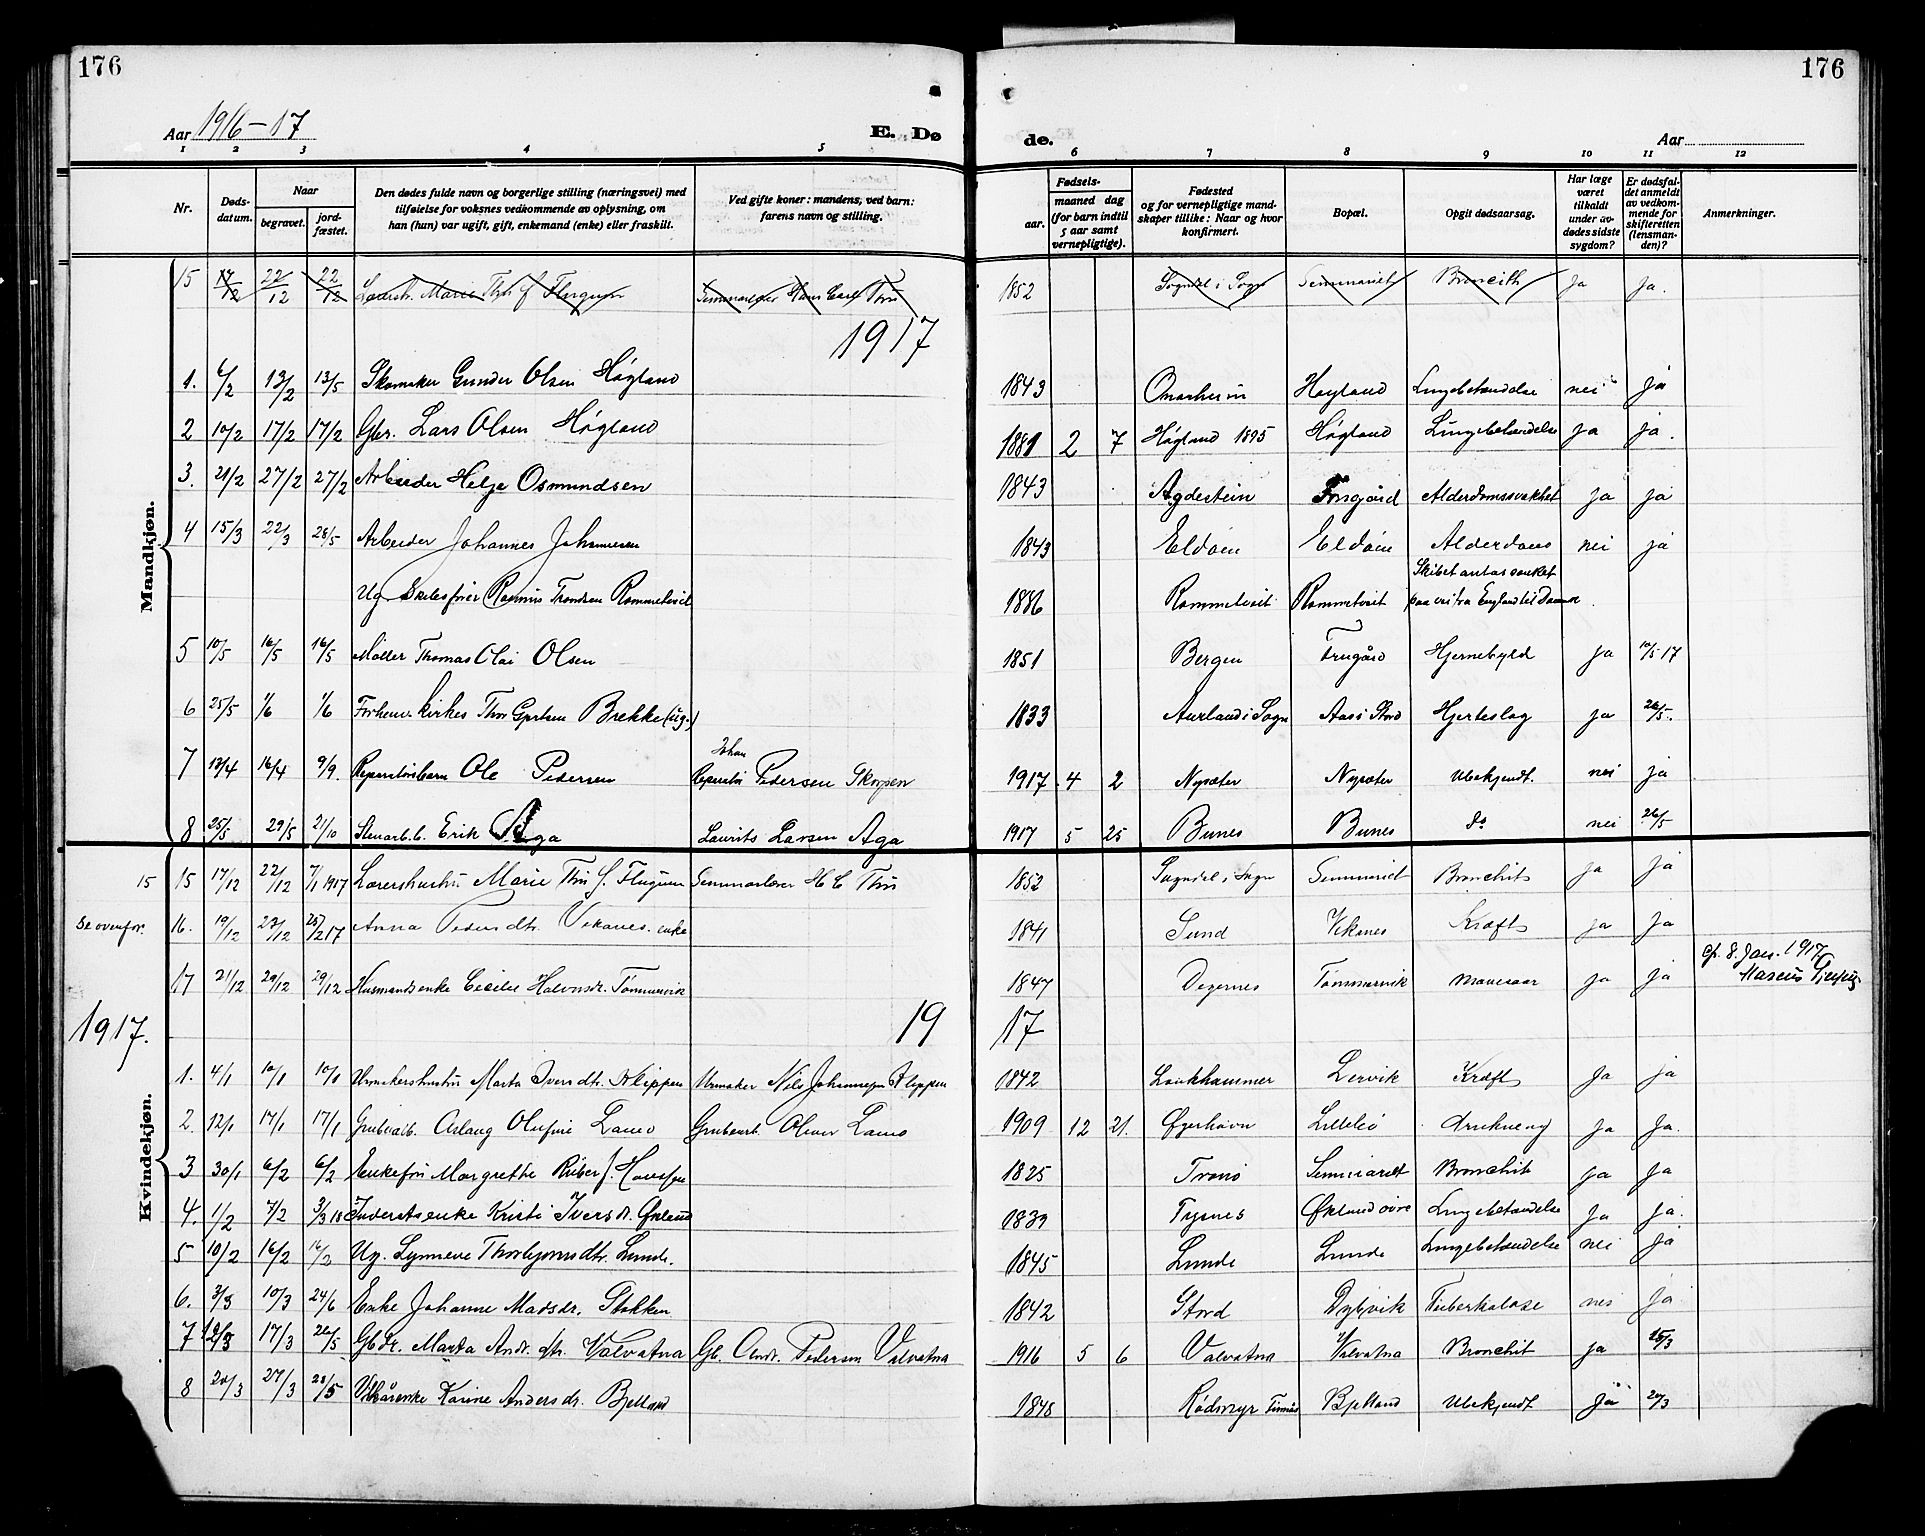 176
176
Aar 1916-17
E. Dø
de.
Aar
1 2 3 4 5 6 7 8 9 10 11 12
Nr.
Døds-
datum.
Naar
begravet.
jord-
fæstet.
Den dødes fulde navn og borgerlige stilling (næringsvei) med
tilføielse for voksnes vedkommende av oplysning, om
han (hun) var ugift, gift, enkemand (enke) eller fraskilt.
Ved gifte koner: mandens, ved barn:
farens navn og stilling.
Fødsels-
aar. maaned dag
(for barn indtil
5 aar samt
vernepligtige).
Fødested
og for vernepligtige mand-
skaper tillike: Naar og hvor
konfirmert.
Bopæl.
Opgit dødsaarsag.
Har læge
været
tilkaldt
under av-
dødes sidste
sygdom?
Er dødsfal-
det anmeldt
av vedkom-
mende for
skifteretten
(lensman-
den)?
Anmerkninger.
Mandkjøn.
15 17/12 22/12 22/12 Marie Thu f. Flugum Hans Carl Thu 1852 Sogndal i Sogn Seminariet Bronchit Ja Ja.
1917
1. 6/2 13/2 13/5 Skomaker Gunder Olsen Høgland 1843 Onarheim Høyland Lungebetændelse nei Ja
2 10/2 17/2 17/2 Gbr. Lars Olsen Høgland 1881 2 7 Høgland 1895 Høgland Lungebetændelse Ja Ja.
3. 21/2 27/2 27/2 Arbeider Helje Osmundsen 1843 Agdestein Alderdomssvakhet Ja Ja
4 15/3 22/3 28/5 Arbeider Johannes Johannesen 1843 Eldøen Eldøen Alderdoms nei Ja
Ug. Rasmus Trondsen Rommetveit 1886 Rommetveit Rommetveit Skibet antas sunket
paa vei fra England til
5 10/5 16/5 16/5 Møller Thomas Olai Olsen 1851 Bergen Frugård Hjernebyld Ja 10/5 17
6 25/5 1/6 1/6 Forhenv. Brekke (ug.) 1833 Aurland i Sogn Aas i Stord Hjerteslag Ja 26/5.
7 13/4 16/4 9/9. Ole Pedersen Johan Pedersen Skorpen 1917 4 2 Nysæter Nysæter Ubekjendt. nei Ja
8 25/5 29/5 21/10 Stenarb. b. Erik Aga Laurits Larsen Aga 1917 5 25 Bunes Bunes do nei 26/5
Kvindekjøn.
15 15 17/12 22/12 7/1 1917 Lærershustru Marie Thu f. Flugum Seminarlærer H C Thu 1852 Sogndal i Sogn Seminariet Bronchit Ja Ja
Se ovenfor. 16. 19/12 27/12 25/2 17 Anna Pedersdtr. Vikanes. enke 1841 Sund Vikanes Kræft Ja Ja
17 21/12 29/12 29/12 Husmandsenke Cecilie Tømmervik 1847 Degernes Tømmervik Mavesaar Ja Ja cf. 8. Jan. 1917
1917. 19 17
1. 4/1 10/1 10/1 Urmakershustru Marta Iversdtr. Klippen Urmaker Nils Johannesen Klippen 1842 Lervik Kræft Ja Ja
2. 12/1 17/1 17/1 Aslaug Olufine Grubearb. 1909 12 21. Ja Ja.
3 30/1 6/2 6/2 Enkefru Margrethe Riber f. 1825 Seminariet Bronchit Ja Ja
4. 1/2 7/2 3/3 18 Kristi Iversdtr. Økland 1839 Tysnes Økland øvre Lungebetændelse Ja Ja.
5 10/2 16/2 16/2 Ug. Synneve Thorbjørnsdtr. Lunde. 1845 Lunde Lunde Lungebetændelse nei Ja
6. 3/3 10/3 24/6 Enke Johanne Madsdr. Stokken 1842 Stord Dybvik Tuberkulose nei Ja
7 12/3 17/3 26/5 Marta Andr. dtr. Valvatna Gb. Andr. Pedersen Valvatna 1916 5 6 Valvatna Valvatna Bronchit Ja 15/3
8 20/3 27/3 28/5 Vilkårenke Karine Andersdr. Bjelland 1848 Rødmyr Bjelland Ubekjendt Ja 20/3